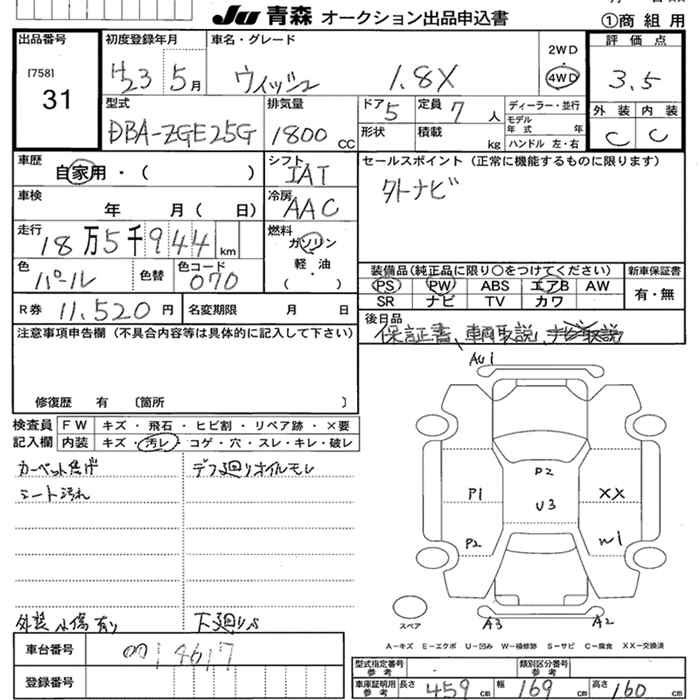 JU 青森 オークション出品申込書
①商組用
出品番号
[758]
31
初度登録年月
H23 5月
車名・グレード
ウィッシュ 1.8X
2WD
4WD
評価点
3.5
外装 内装
C C
型式
DBA-ZGE25G
排気量
1800 CC
ドア 5
定員 7 人
形状
積載 kg
ディーラー・並行
モデル年式 年
ハンドル 左・右
車歴
自家用・( )
シフト
IAT
セールスポイント(正常に機能するものに限ります)
外ナビ
車検
年 月( 日)
冷房
AAC
走行
18万5千944 km
燃料
ガソリン
軽・油
・( )
色
パール
色替
色コード
070
装備品(純正品に限り○をつけてください)
PS PW ABS エアB AW
SR ナビ TV カワ
新車保証書
有・無
R券 11,520円
名変期限 月 日
後日品
保証書、車両取説、ナビ取説
注意事項申告欄(不具合内容等は具体的に記入して下さい)
修復歴 有 〔箇所 〕
検査員記入欄
FW キズ・飛石・ヒビ割・リペア跡・×要
内装 キズ・汚レ・コゲ・穴・スレ・キレ・破レ
カーペット焦げ
シート汚れ
デフ廻りオイルモレ
外装小傷有り
下廻りS
AU1
P2
P1
U3
XX
P2
W1
A3
A2
スペア
A-キズ E-エクボ U-凹み W-補修跡 S-サビ C-腐食 XX-交換済
車台番号
0014617
登録番号
型式指定番号 参考
類別区分番号 参考
車庫証明用 参考
長さ 459 cm
幅 169 cm
高さ 160 cm